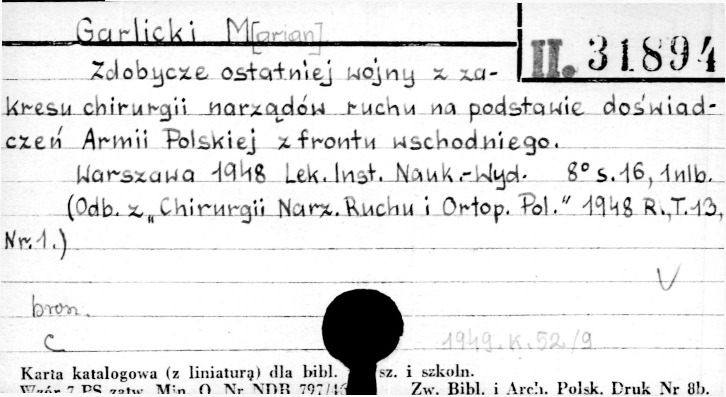 Garlicki M[arian]
II. 31894
Zdobycze ostatniej wojny z za-
kresu chirurgii narządów ruchu na podstawie doświad-
czeń Armii Polskiej z frontu wschodniego.
Warszawa 1948 Lek. Inst. Nauk.-Wyd. 8° s.16, 1nlb.
(Odb. z „Chirurgii Narz. Ruchu i Ortop. Pol." 1948 R., T.13,
Nr.1.)
V
bron.
C
1949.K.52/9
Karta katalogowa (z liniaturą) dla bibl. sz. i szkoln.
Wzór 7 PS zatw. Min. O. Nr NDB 797/46 Zw. Bibl. i Arch. Polsk. Druk Nr 8b.